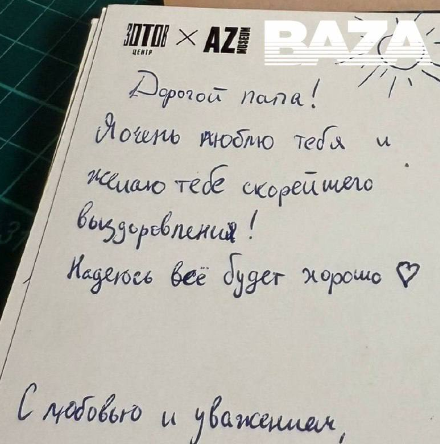 ЗОТОВ ЦЕНТР × AZ MUSEUM BAZA
Дорогой папа!
Я очень люблю тебя и
желаю тебе скорейшего
выздоровления!
Надеюсь всё будет хорошо ♡
С любовью и уважением,